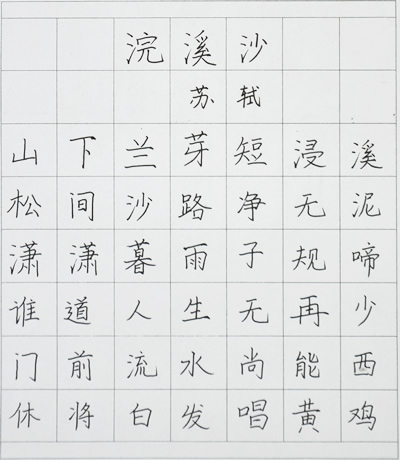 浣溪沙
苏轼
山下兰芽短浸溪
松间沙路净无泥
潇潇暮雨子规啼
谁道人生无再少
门前流水尚能西
休将白发唱黄鸡